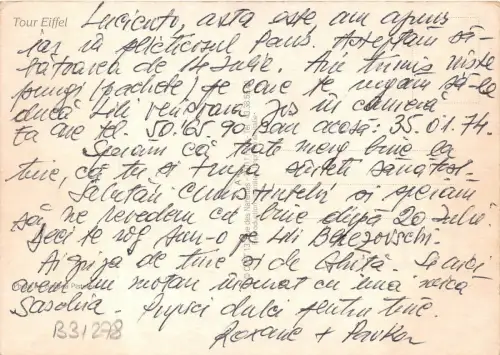 Tour Eiffel
Luciento, asta este, am ajuns
iar în plicticosul Paris. Așteptăm săr-
bătoarea de 14 Iulie. Am trimis niște
pungi (pachete) pe care te rugăm să le
ducă Lili vendrana jos în cameră
Ea are tl. 50.165.90 sau acasă: 35.01.74.
Sperăm că toate merg bine cu
tine, că tu și trupa sunteți sănătoși.
Salutări și sperăm
să ne revedem cu bine după 20 Iulie.
Deci te rog sun-o pe Lili Berezovschi.
Ai grijă de tine și de Ghiță. Și aici
avem un motan însurat cu una mică
Saschia. Pupici dulci pentru tine.
Roxane + Pavkor
B31278